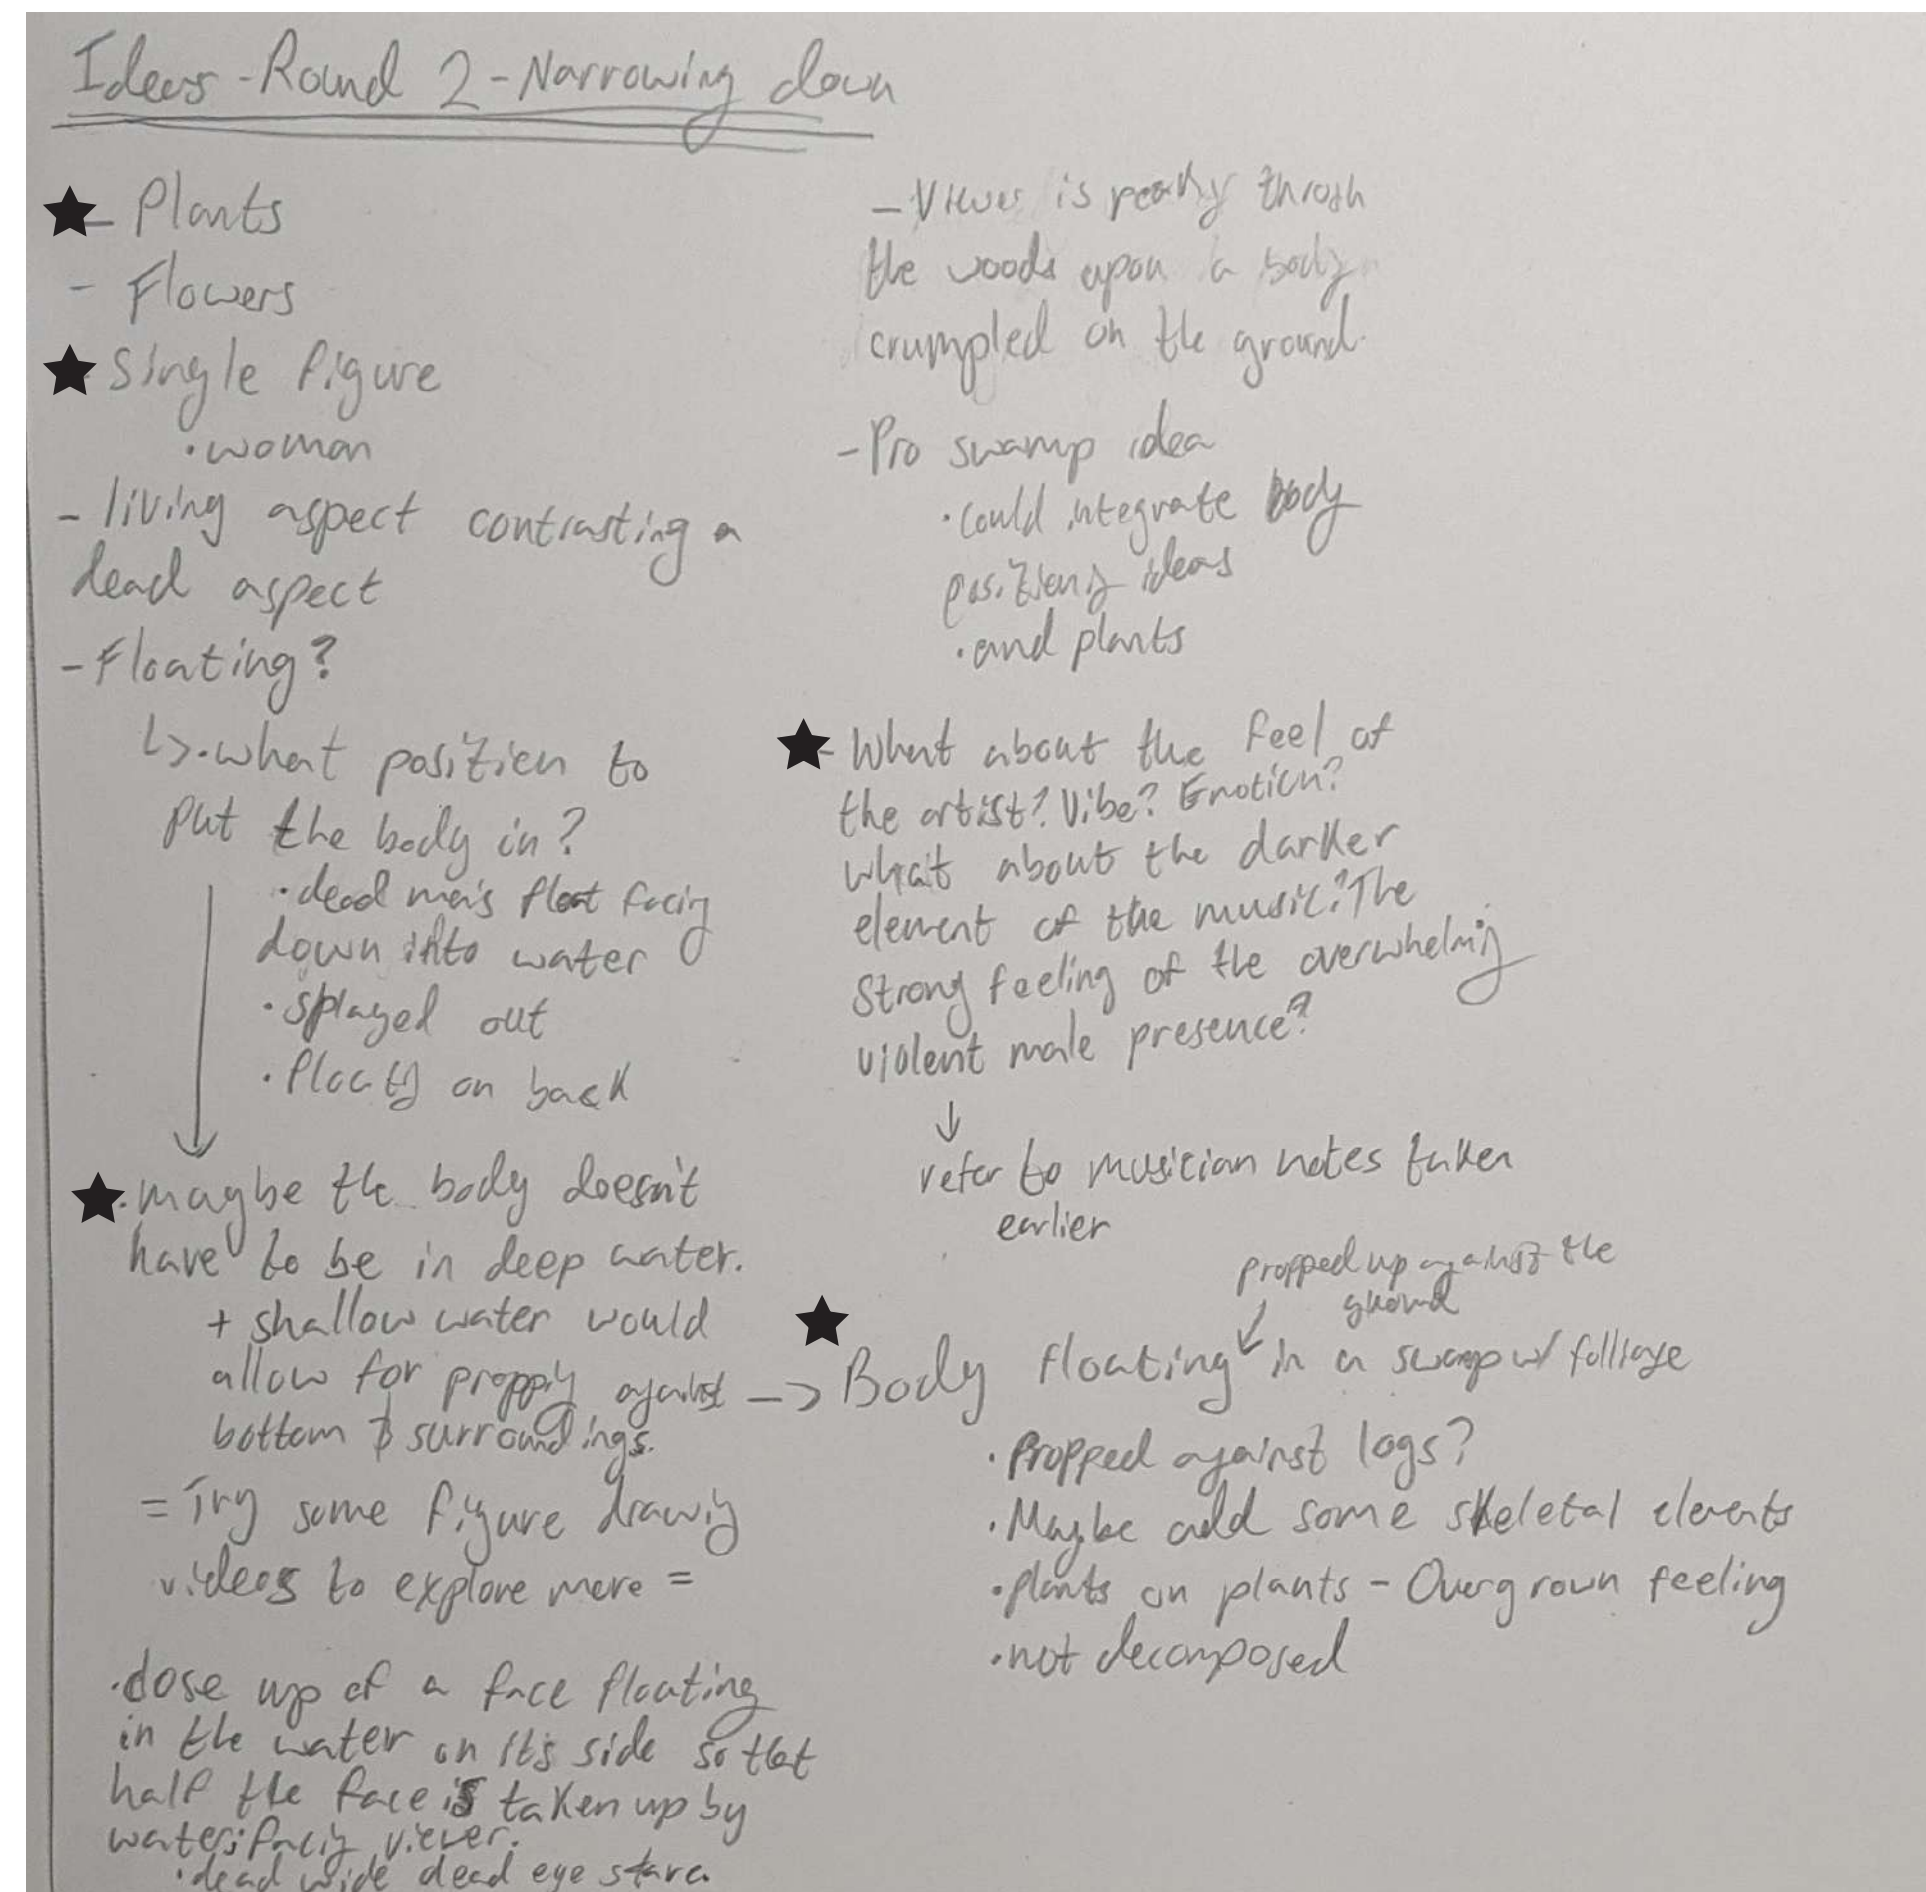 Ideas - Round 2 - Narrowing down
- Plants
- Flowers
- Single figure
· woman
- living aspect contrasting a
dead aspect
- Floating?
↳ · what position to
put the body in?
· dead man's float facing
down into water
· splayed out
· floating on back
· maybe the body doesn't
have to be in deep water.
+ shallow water would
allow for propping against
bottom & surroundings.
= Try some figure drawing
videos to explore more =
· close up of a face floating
in the water on it's side so that
half the face is taken up by
water; facing viewer.
· dead wide dead eye stare
- Viewer is peaking through
the woods upon a body
crumpled on the ground.
- Pro swamp idea
· could integrate body
positioning ideas
· and plants
- What about the feel of
the artist? Vibe? Emotion?
what about the darker
element of the music? The
strong feeling of the overwhelming
violent male presence?
↓
refer to musician notes taken
earlier
propped up against the
ground
-> Body floating in a swamp w/ folliage
· Propped against logs?
· Maybe add some skeletal elements
· plants on plants - Overgrown feeling
· not decomposed